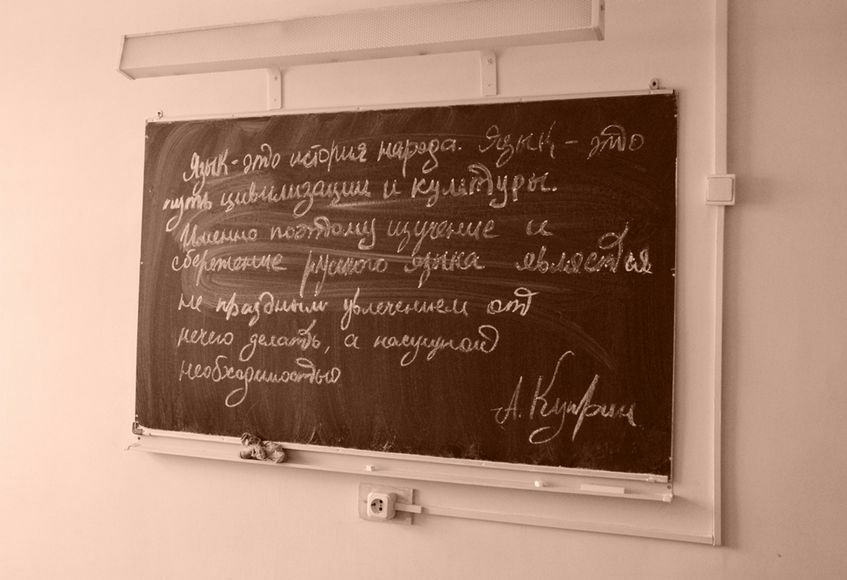 Язык - это история народа. Язык - это
путь цивилизации и культуры.
Именно поэтому изучение и
сбережение русского языка является
не праздным увлечением от
нечего делать, а насущной
необходимостью
А. Куприн